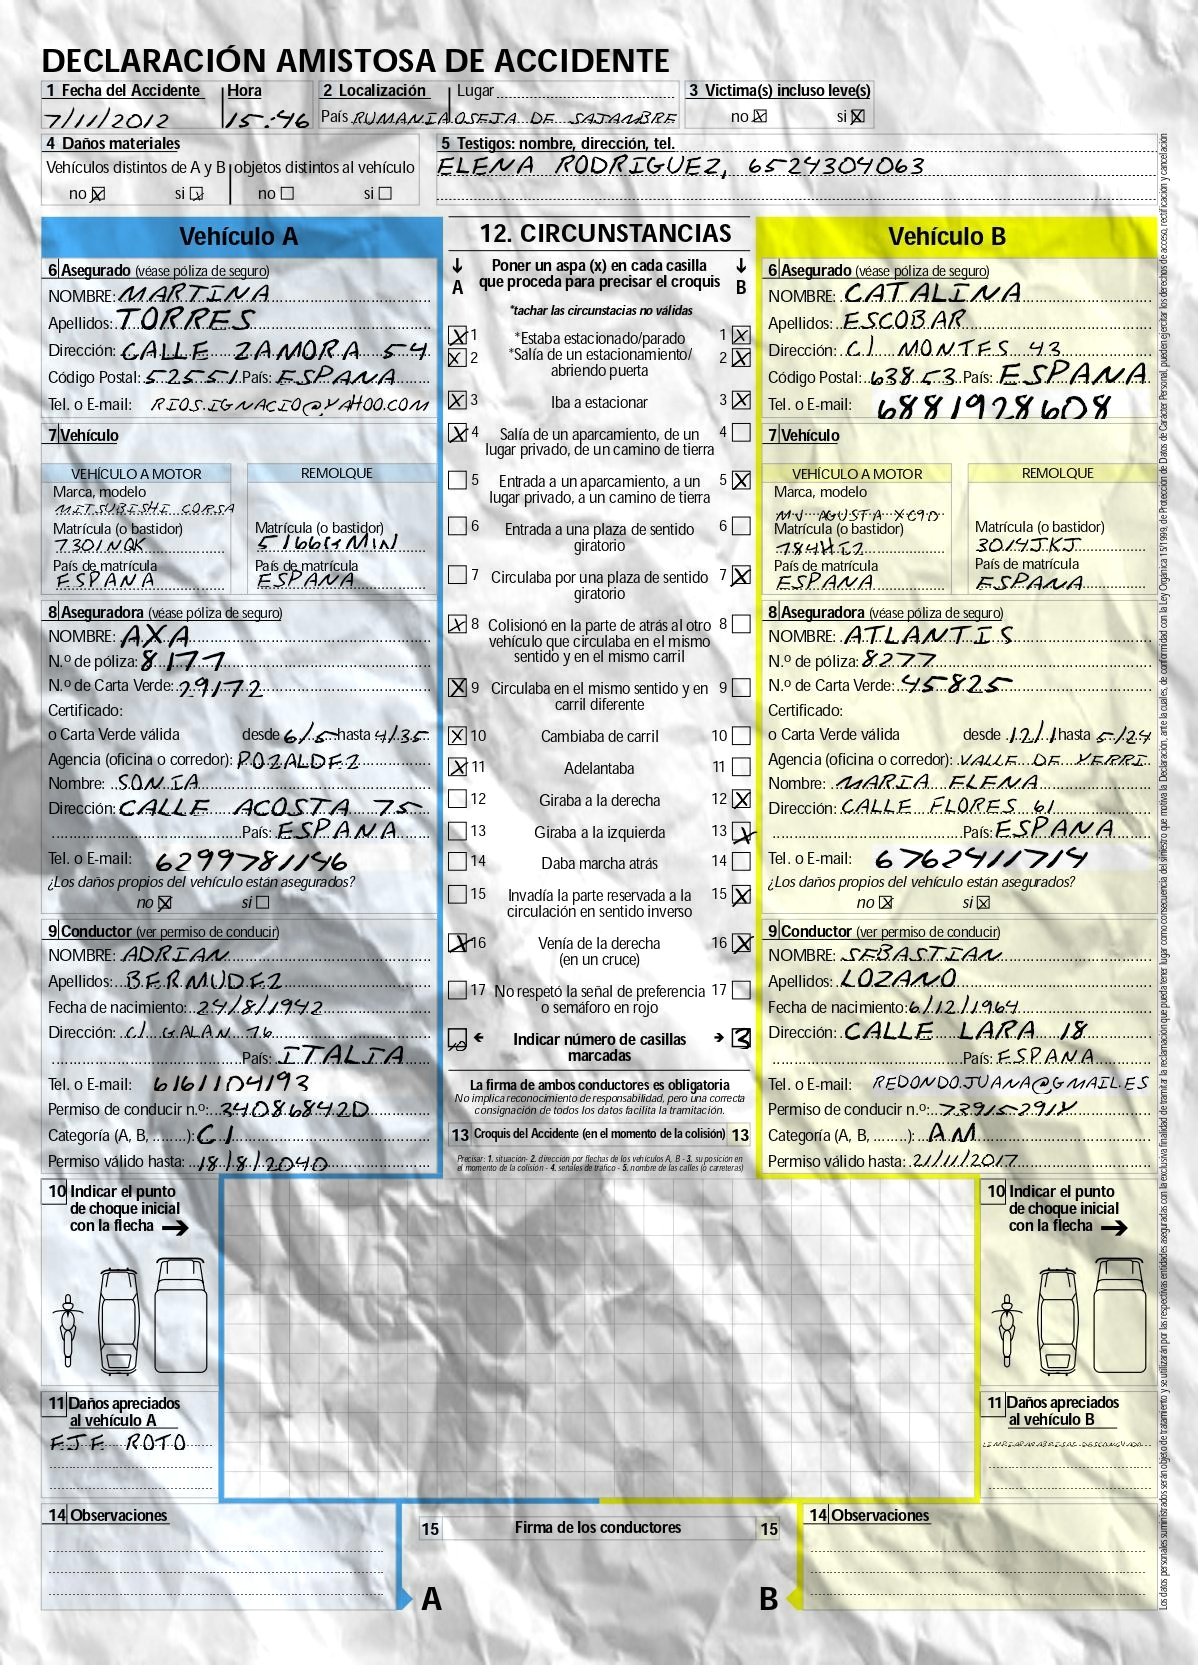 DECLARACIÓN AMISTOSA DE ACCIDENTE
1 Fecha del Accidente Hora 2 Localización Lugar 3 Victima(s) incluso leve(s)
7/11/2012 15:46 País RUMANIA OSEJA DE SAJAMBRE no si
4 Daños materiales 5 Testigos: nombre, dirección, tel.
Vehículos distintos de A y B objetos distintos al vehículo ELENA RODRIGUEZ, 6524304063
no si no si
Vehículo A
6 Asegurado (véase póliza de seguro)
NOMBRE: MARTINA
Apellidos: TORRES
Dirección: CALLE ZAMORA 54
Código Postal: 52551 País: ESPANA
Tel. o E-mail: RIOS.IGNACIO@YAHOO.COM
7 Vehículo
VEHÍCULO A MOTOR REMOLQUE
Marca, modelo
MITSUBISHI CORSA
Matrícula (o bastidor) Matrícula (o bastidor)
7301NQK 5166GMIN
País de matrícula País de matrícula
ESPANA ESPANA
8 Aseguradora (véase póliza de seguro)
NOMBRE: AXA
N.º de póliza: 8177
N.º de Carta Verde: 29172
Certificado:
o Carta Verde válida desde 6/5 hasta 4/35
Agencia (oficina o corredor): POZALDEZ
Nombre: SONIA
Dirección: CALLE ACOSTA 75
País: ESPANA
Tel. o E-mail: 6299781146
¿Los daños propios del vehículo están asegurados?
no si
9 Conductor (ver permiso de conducir)
NOMBRE: ADRIAN
Apellidos: BERMUDEZ
Fecha de nacimiento: 24/8/1942
Dirección: C/ GALAN 76
País: ITALIA
Tel. o E-mail: 6161104193
Permiso de conducir n.º: 34086842D
Categoría (A, B, ........): C1
Permiso válido hasta: 18/8/2040
10 Indicar el punto
de choque inicial
con la flecha
11 Daños apreciados
al vehículo A
EJE ROTO
14 Observaciones
12. CIRCUNSTANCIAS
A Poner un aspa (x) en cada casilla B
que proceda para precisar el croquis
*tachar las circunstacias no válidas
1 *Estaba estacionado/parado 1
2 *Salía de un estacionamiento/ 2
abriendo puerta
3 Iba a estacionar 3
4 Salía de un aparcamiento, de un 4
lugar privado, de un camino de tierra
5 Entrada a un aparcamiento, a un 5
lugar privado, a un camino de tierra
6 Entrada a una plaza de sentido 6
giratorio
7 Circulaba por una plaza de sentido 7
giratorio
8 Colisionó en la parte de atrás al otro 8
vehículo que circulaba en el mismo
sentido y en el mismo carril
9 Circulaba en el mismo sentido y en 9
carril diferente
10 Cambiaba de carril 10
11 Adelantaba 11
12 Giraba a la derecha 12
13 Giraba a la izquierda 13
14 Daba marcha atrás 14
15 Invadía la parte reservada a la 15
circulación en sentido inverso
16 Venía de la derecha 16
(en un cruce)
17 No respetó la señal de preferencia 17
o semáforo en rojo
10 Indicar número de casillas 3
marcadas
La firma de ambos conductores es obligatoria
No implica reconocimiento de responsabilidad, pero una correcta
consignación de todos los datos facilita la tramitación.
13 Croquis del Accidente (en el momento de la colisión) 13
Precisar: 1. situación- 2. dirección por flechas de los vehículos A, B - 3. su posición en
el momento de la colisión - 4. señales de tráfico - 5. nombre de las calles (o carreteras)
15 Firma de los conductores 15
A B
Vehículo B
6 Asegurado (véase póliza de seguro)
NOMBRE: CATALINA
Apellidos: ESCOBAR
Dirección: C/ MONTES 43
Código Postal: 63853 País: ESPANA
Tel. o E-mail: 6881928608
7 Vehículo
VEHÍCULO A MOTOR REMOLQUE
Marca, modelo
MV AGUSTA XC9D
Matrícula (o bastidor) Matrícula (o bastidor)
3014JKJ
País de matrícula País de matrícula
ESPANA ESPANA
8 Aseguradora (véase póliza de seguro)
NOMBRE: ATLANTIS
N.º de póliza: 8277
N.º de Carta Verde: 45825
Certificado:
o Carta Verde válida desde 12/1 hasta 5/24
Agencia (oficina o corredor): VALLE DE YERRI
Nombre: MARIA ELENA
Dirección: CALLE FLORES 61
País: ESPANA
Tel. o E-mail: 6762411714
¿Los daños propios del vehículo están asegurados?
no si
9 Conductor (ver permiso de conducir)
NOMBRE: SEBASTIAN
Apellidos: LOZANO
Fecha de nacimiento: 6/12/1964
Dirección: CALLE LARA 18
País: ESPANA
Tel. o E-mail: REDONDOJUANA@GMAIL.ES
Permiso de conducir n.º: 73915291X
Categoría (A, B, ........): AM
Permiso válido hasta: 21/11/2017
10 Indicar el punto
de choque inicial
con la flecha
11 Daños apreciados
al vehículo B
LIMPIAPARABRISAS DESCONGUADO
14 Observaciones
Los datos personales suministrados serán objeto de tratamiento y se utilizarán por las respectivas entidades aseguradas con la exclusiva finalidad de tramitar la reclamación que pueda tener lugar como consecuencia del siniestro que motiva la Declaración, ante la cuales, de conformidad con la Ley Orgánica 15/1999, de Protección de Datos de Carácter Personal, pueden ejercitar los derechos de acceso, rectificación y cancelación